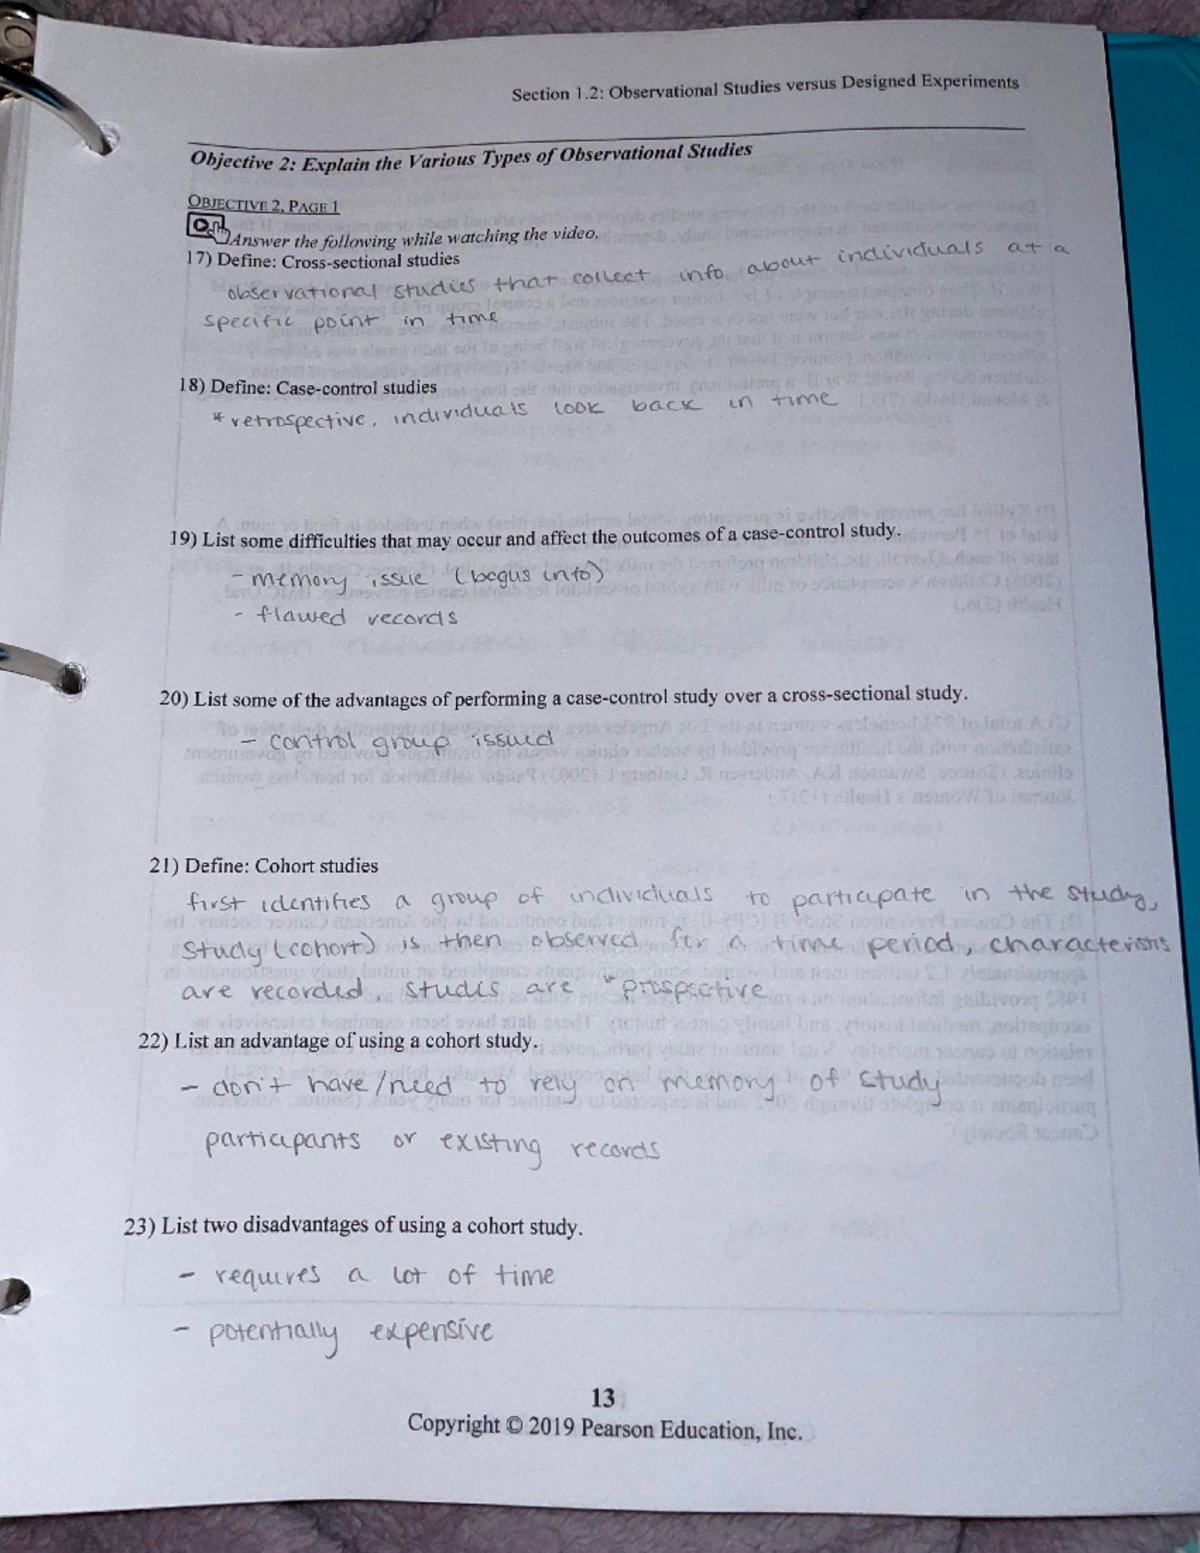 Section 1.2: Observational Studies versus Designed Experiments
Objective 2: Explain the Various Types of Observational Studies
OBJECTIVE 2, PAGE 1
Answer the following while watching the video.
17) Define: Cross-sectional studies
observational studies that collect info about individuals at a
specific point in time
18) Define: Case-control studies
* retrospective, individuals look back in time
19) List some difficulties that may occur and affect the outcomes of a case-control study.
- memory issue (bogus info)
- flawed records
20) List some of the advantages of performing a case-control study over a cross-sectional study.
- control group issued
21) Define: Cohort studies
first identifies a group of individuals to participate in the study,
study (cohort) is then observed for a time period, characteristics
are recorded. studies are * prospective
22) List an advantage of using a cohort study.
- don't have/need to rely on memory of study
participants or existing records
23) List two disadvantages of using a cohort study.
- requires a lot of time
- potentially expensive
13
Copyright © 2019 Pearson Education, Inc.